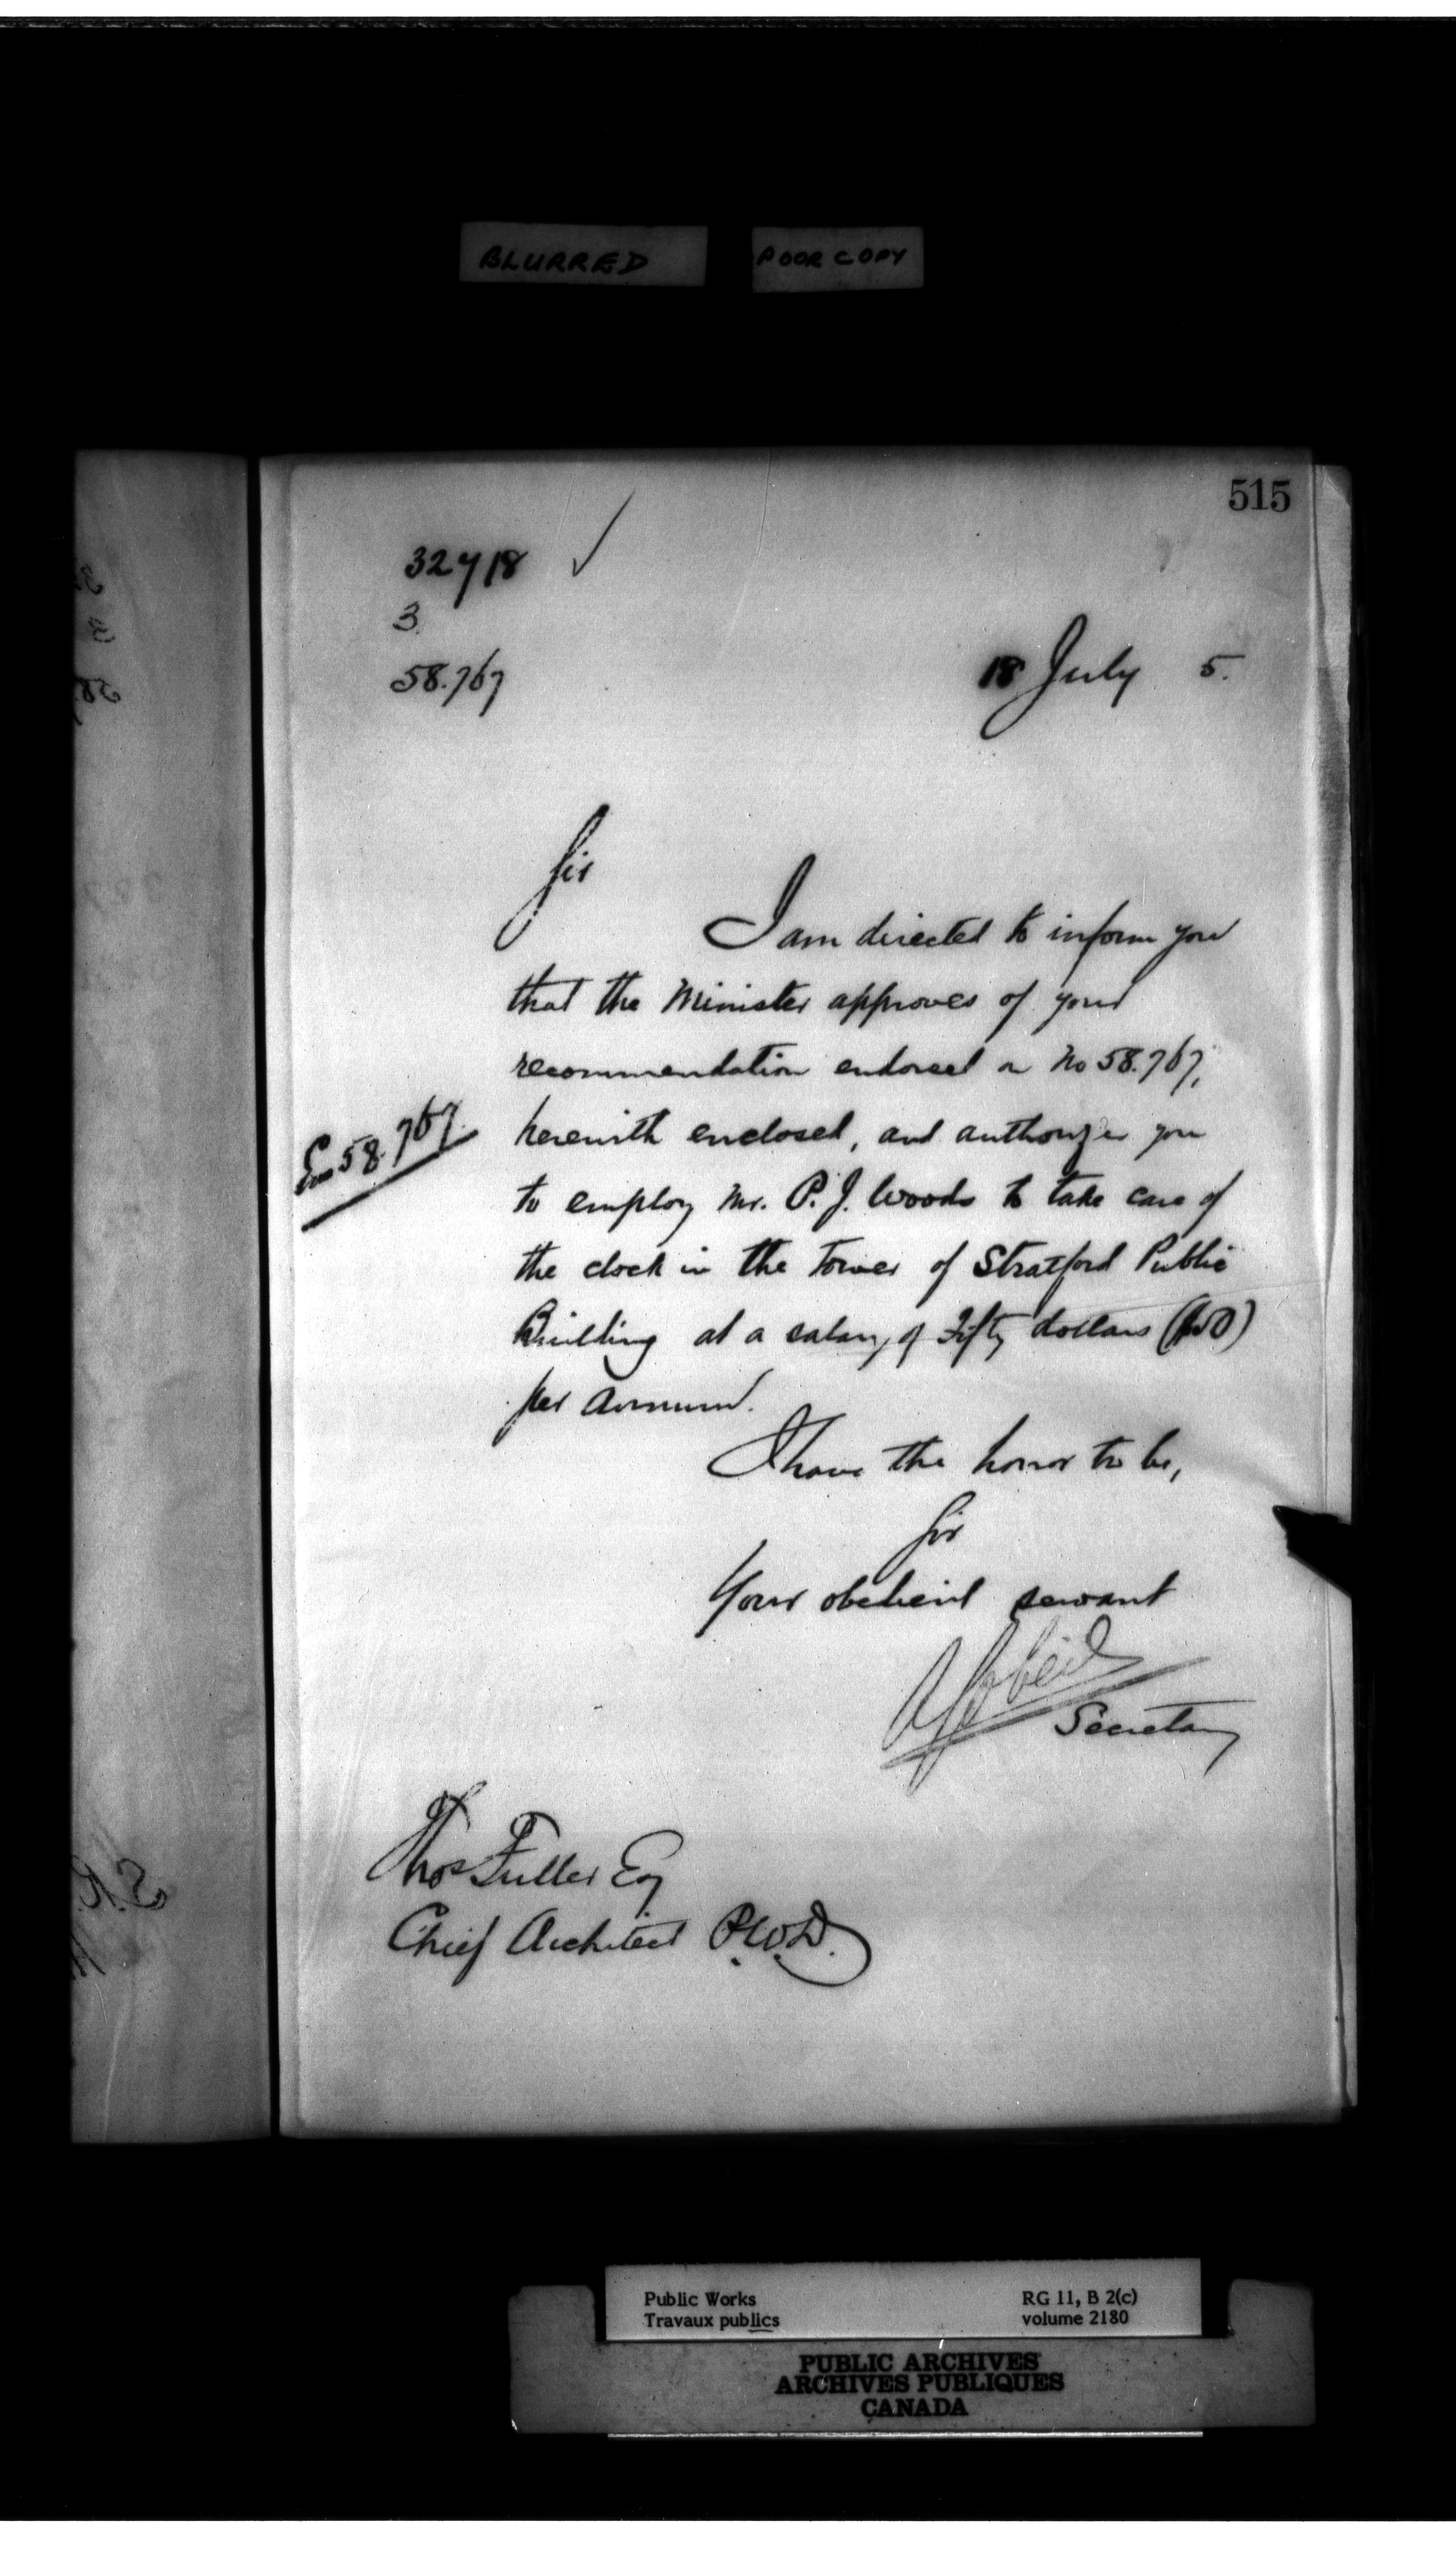 BLURRED
POOR COPY
515
32718
3
58.767
18 July 5.
Sir
I am directed to inform you
that the Minister approves of your
recommendation endorsed on No 58.767,
herewith enclosed, and authorizes you
En 58.767
to employ Mr. P. J. Woods to take care of
the clock in the tower of Stratford Public
Building at a salary of Fifty dollars ($50)
per annum.
I have the honor to be,
Sir
Your obedient servant
Secretary
Thos Fuller Esq
Chief Architect P.W.D.
Public Works
Travaux publics
RG 11, B 2(c)
volume 2180
PUBLIC ARCHIVES
ARCHIVES PUBLIQUES
CANADA